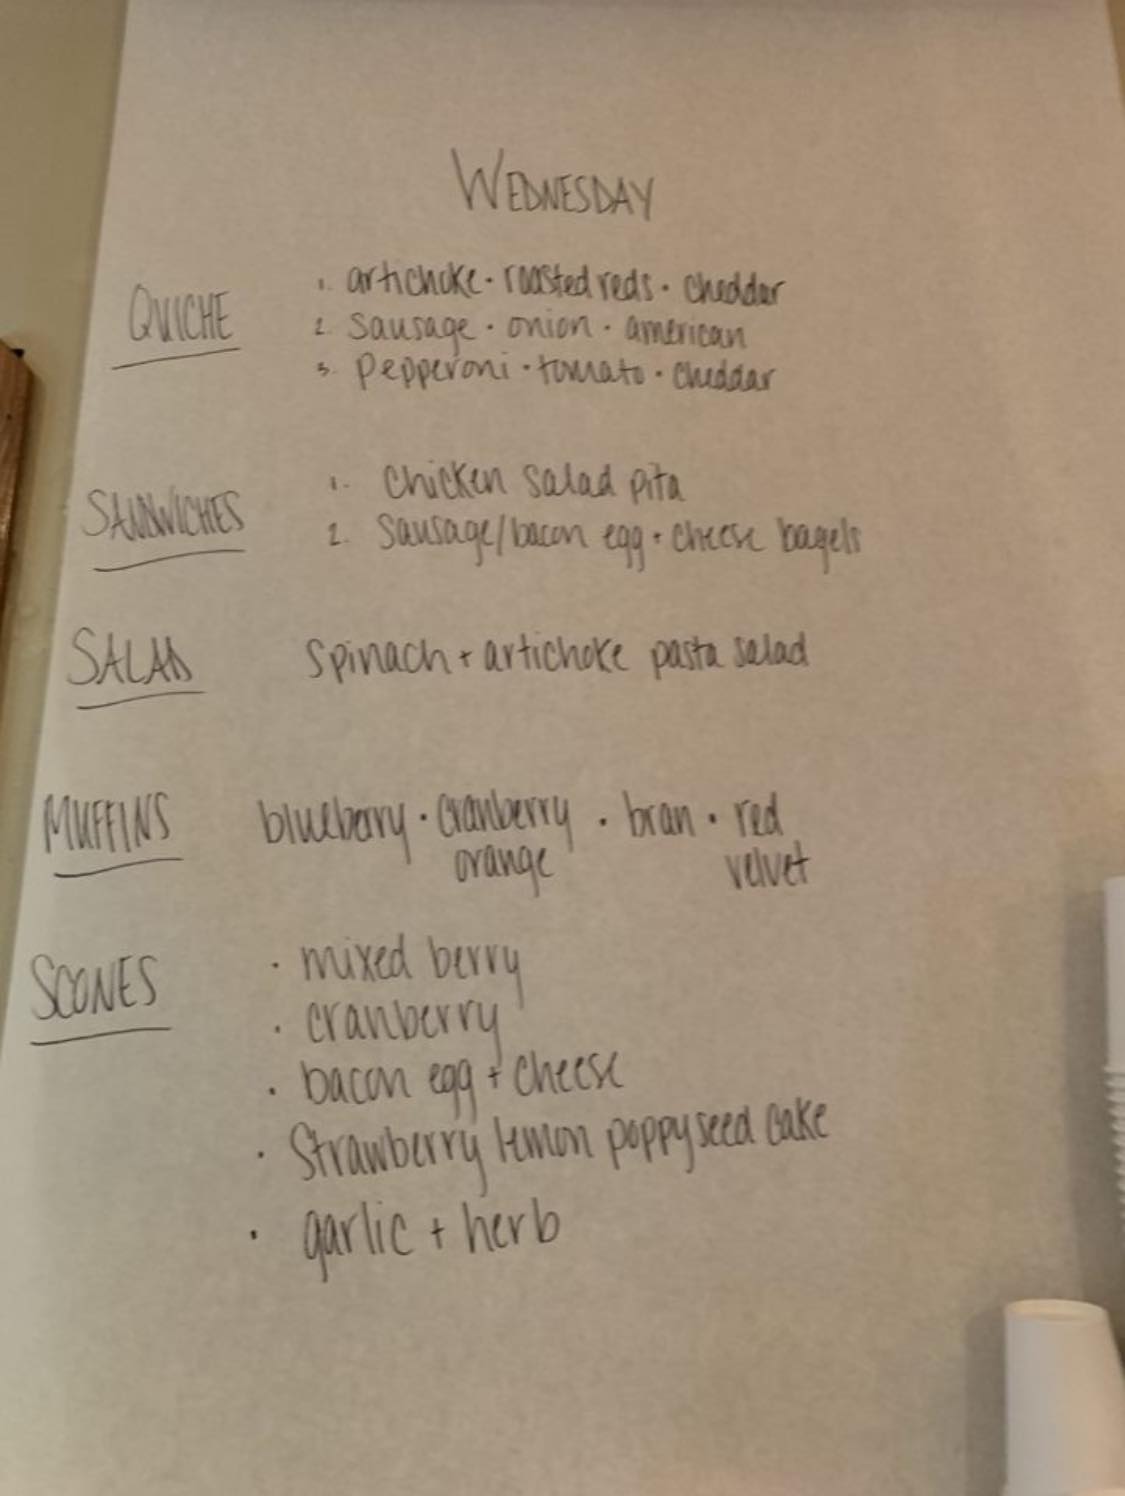 WEDNESDAY
QUICHE
1. artichoke · roasted reds · cheddar
2. sausage · onion · american
3. pepperoni · tomato · cheddar
SANDWICHES
1. chicken salad pita
2. sausage/bacon egg + cheese bagels
SALAD spinach + artichoke pasta salad
MUFFINS blueberry · cranberry · bran · red
orange velvet
SCONES
· mixed berry
· cranberry
· bacon egg + cheese
· strawberry lemon poppyseed cake
· garlic + herb